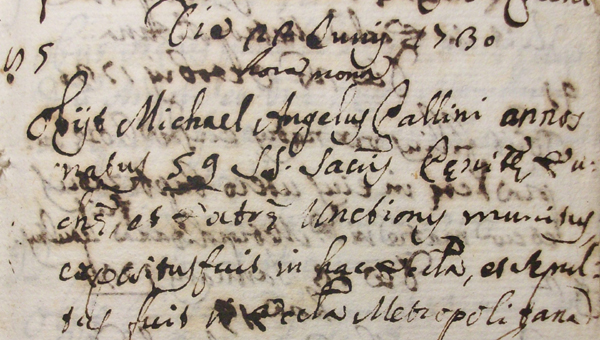 Die Junij 1730
55 hora nona
Obijt Michael Angelus Callini annos
natus 59 SS. Sacris Penitē, Eu-
chē, et Extrē Unctionis munitus,
expositus fuit in hac Eccla, et sepul-
tus fuit in Eccla Metropolitana